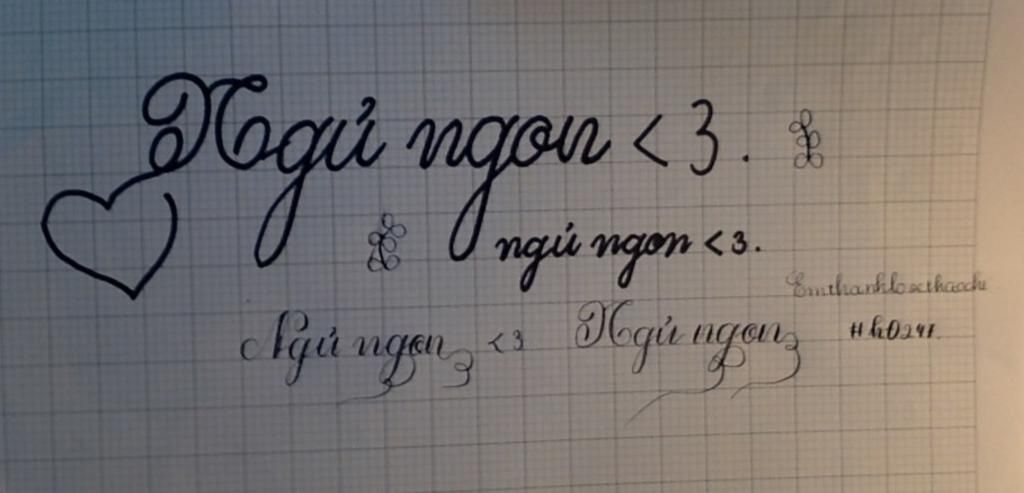 Ngủ ngon <3.
ngủ ngon <3.
Ngủ ngon <3 Ngủ ngon